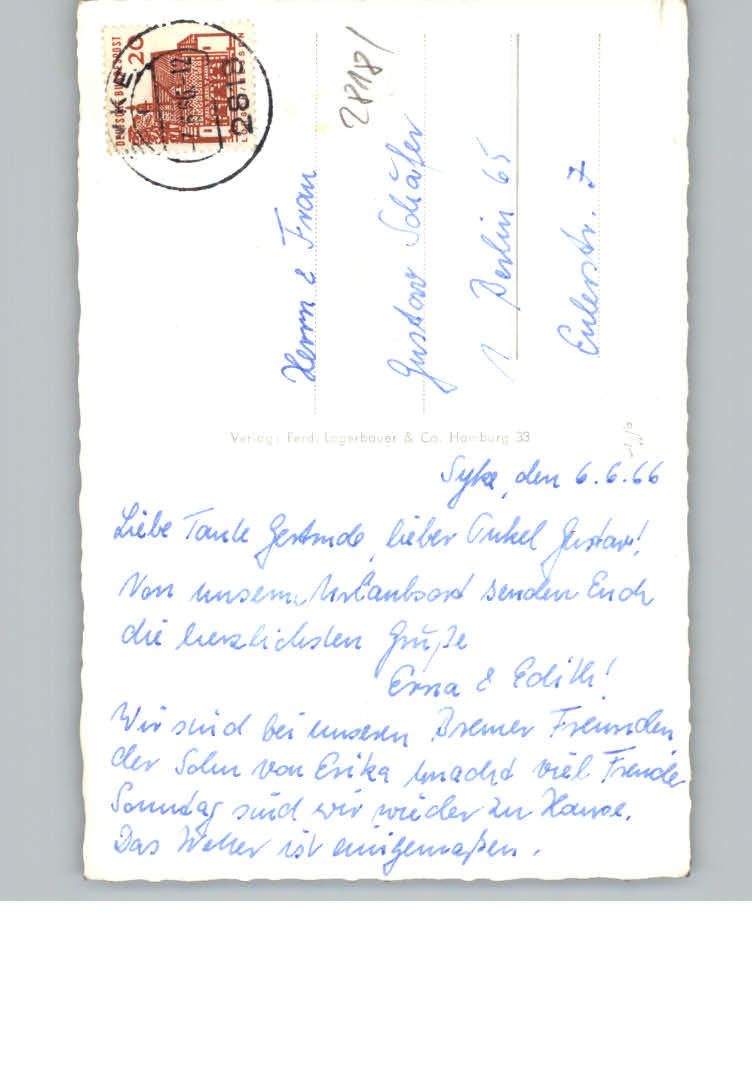 DEUTSCHE BUNDESPOST
20
LORSCH/HESSEN
2818
28181
Herrn & Frau
Gustav Schäfer
1 Berlin 65
Eulerstr. 7
Verlag: Ferd. Lagerbauer & Co. Hamburg 33
Syke, den 6.6.66
Liebe Tante Gertrude, lieber Onkel Gustav!
Von unserm Urlaubsort senden Euch
die herzlichsten Grüße
Erna & Edith!
Wir sind bei unseren Bremer Freunden
der Sohn von Erika macht viel Freude
Sonntag sind wir wieder zu Hause.
Das Wetter ist einigermaßen.